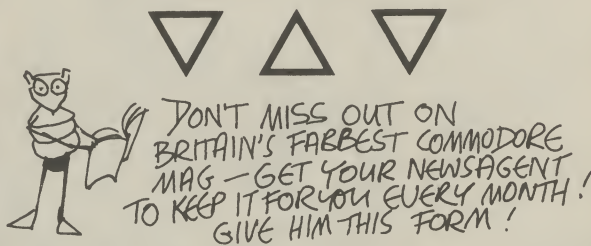 DON'T MISS OUT ON
BRITAIN'S FABBEST COMMODORE
MAG - GET YOUR NEWSAGENT
TO KEEP IT FOR YOU EVERY MONTH!
GIVE HIM THIS FORM!